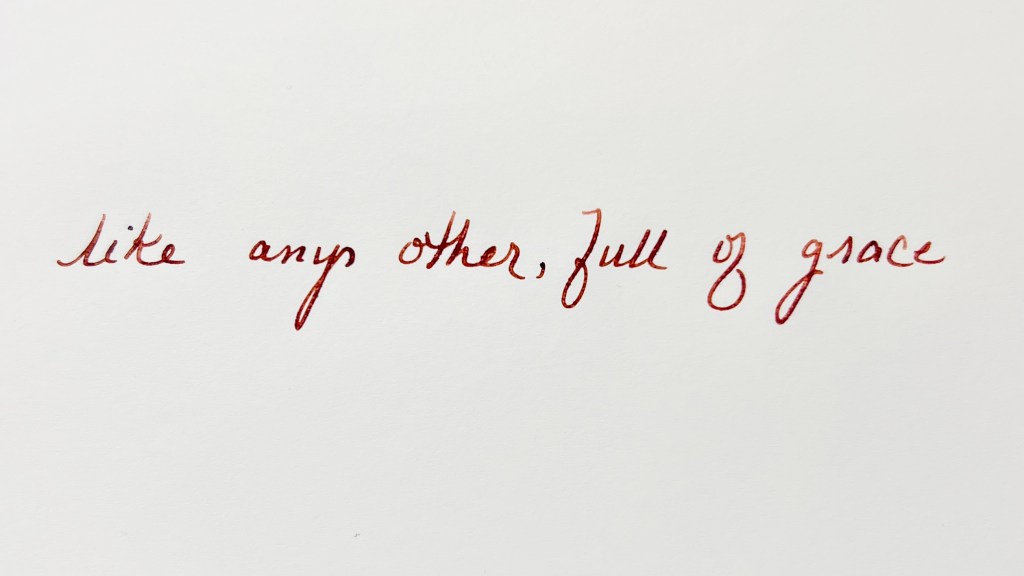 like any other, full of grace